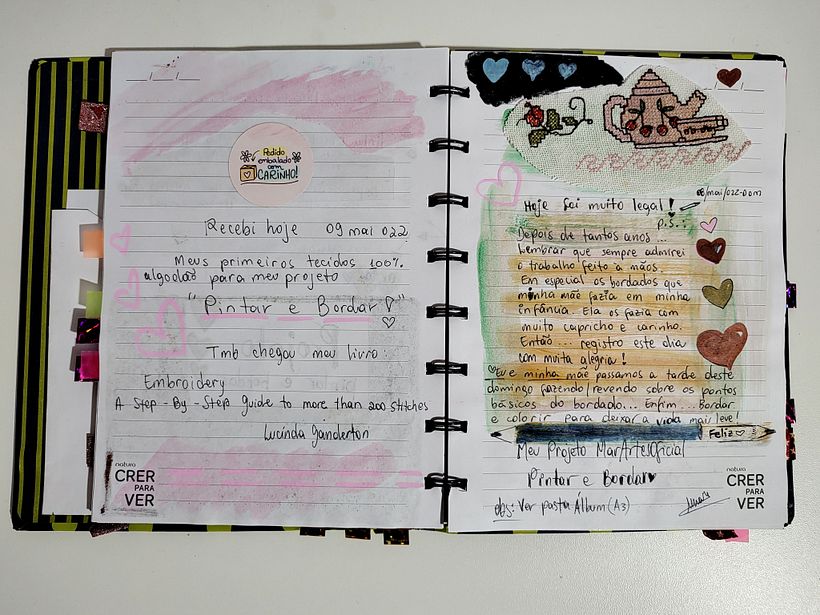 __/__/__
Pedido
embalado
com
CARINHO!
Recebi hoje 09 mai 022
Meus primeiros tecidos 100%
algodão para meu projeto
"Pintar e Bordar"
Tmb chegou meu livro:
Embroidery
A Step-By-Step Guide to more than 200 stitches
Lucinda Ganderton
natura
CRER
PARA
VER
08/mai/022-Dom
Hoje foi muito legal!
P.S.:
Depois de tantos anos...
Lembrar que sempre admirei
o trabalho feito a mãos.
Em especial os bordados que
minha mãe fazia em minha
infância. Ela os fazia com
muito capricho e carinho.
Então... registro este dia
com muita alegria!
Eu e minha mãe passamos a tarde deste
domingo fazendo/revendo sobre os pontos
básicos do bordado... Enfim... Bordar
e colorir para deixar a vida mais leve!
Feliz
Meu Projeto MarArtesOficial
Pintar e Bordar
obs: Ver pasta Álbum (A3)
natura
CRER
PARA
VER